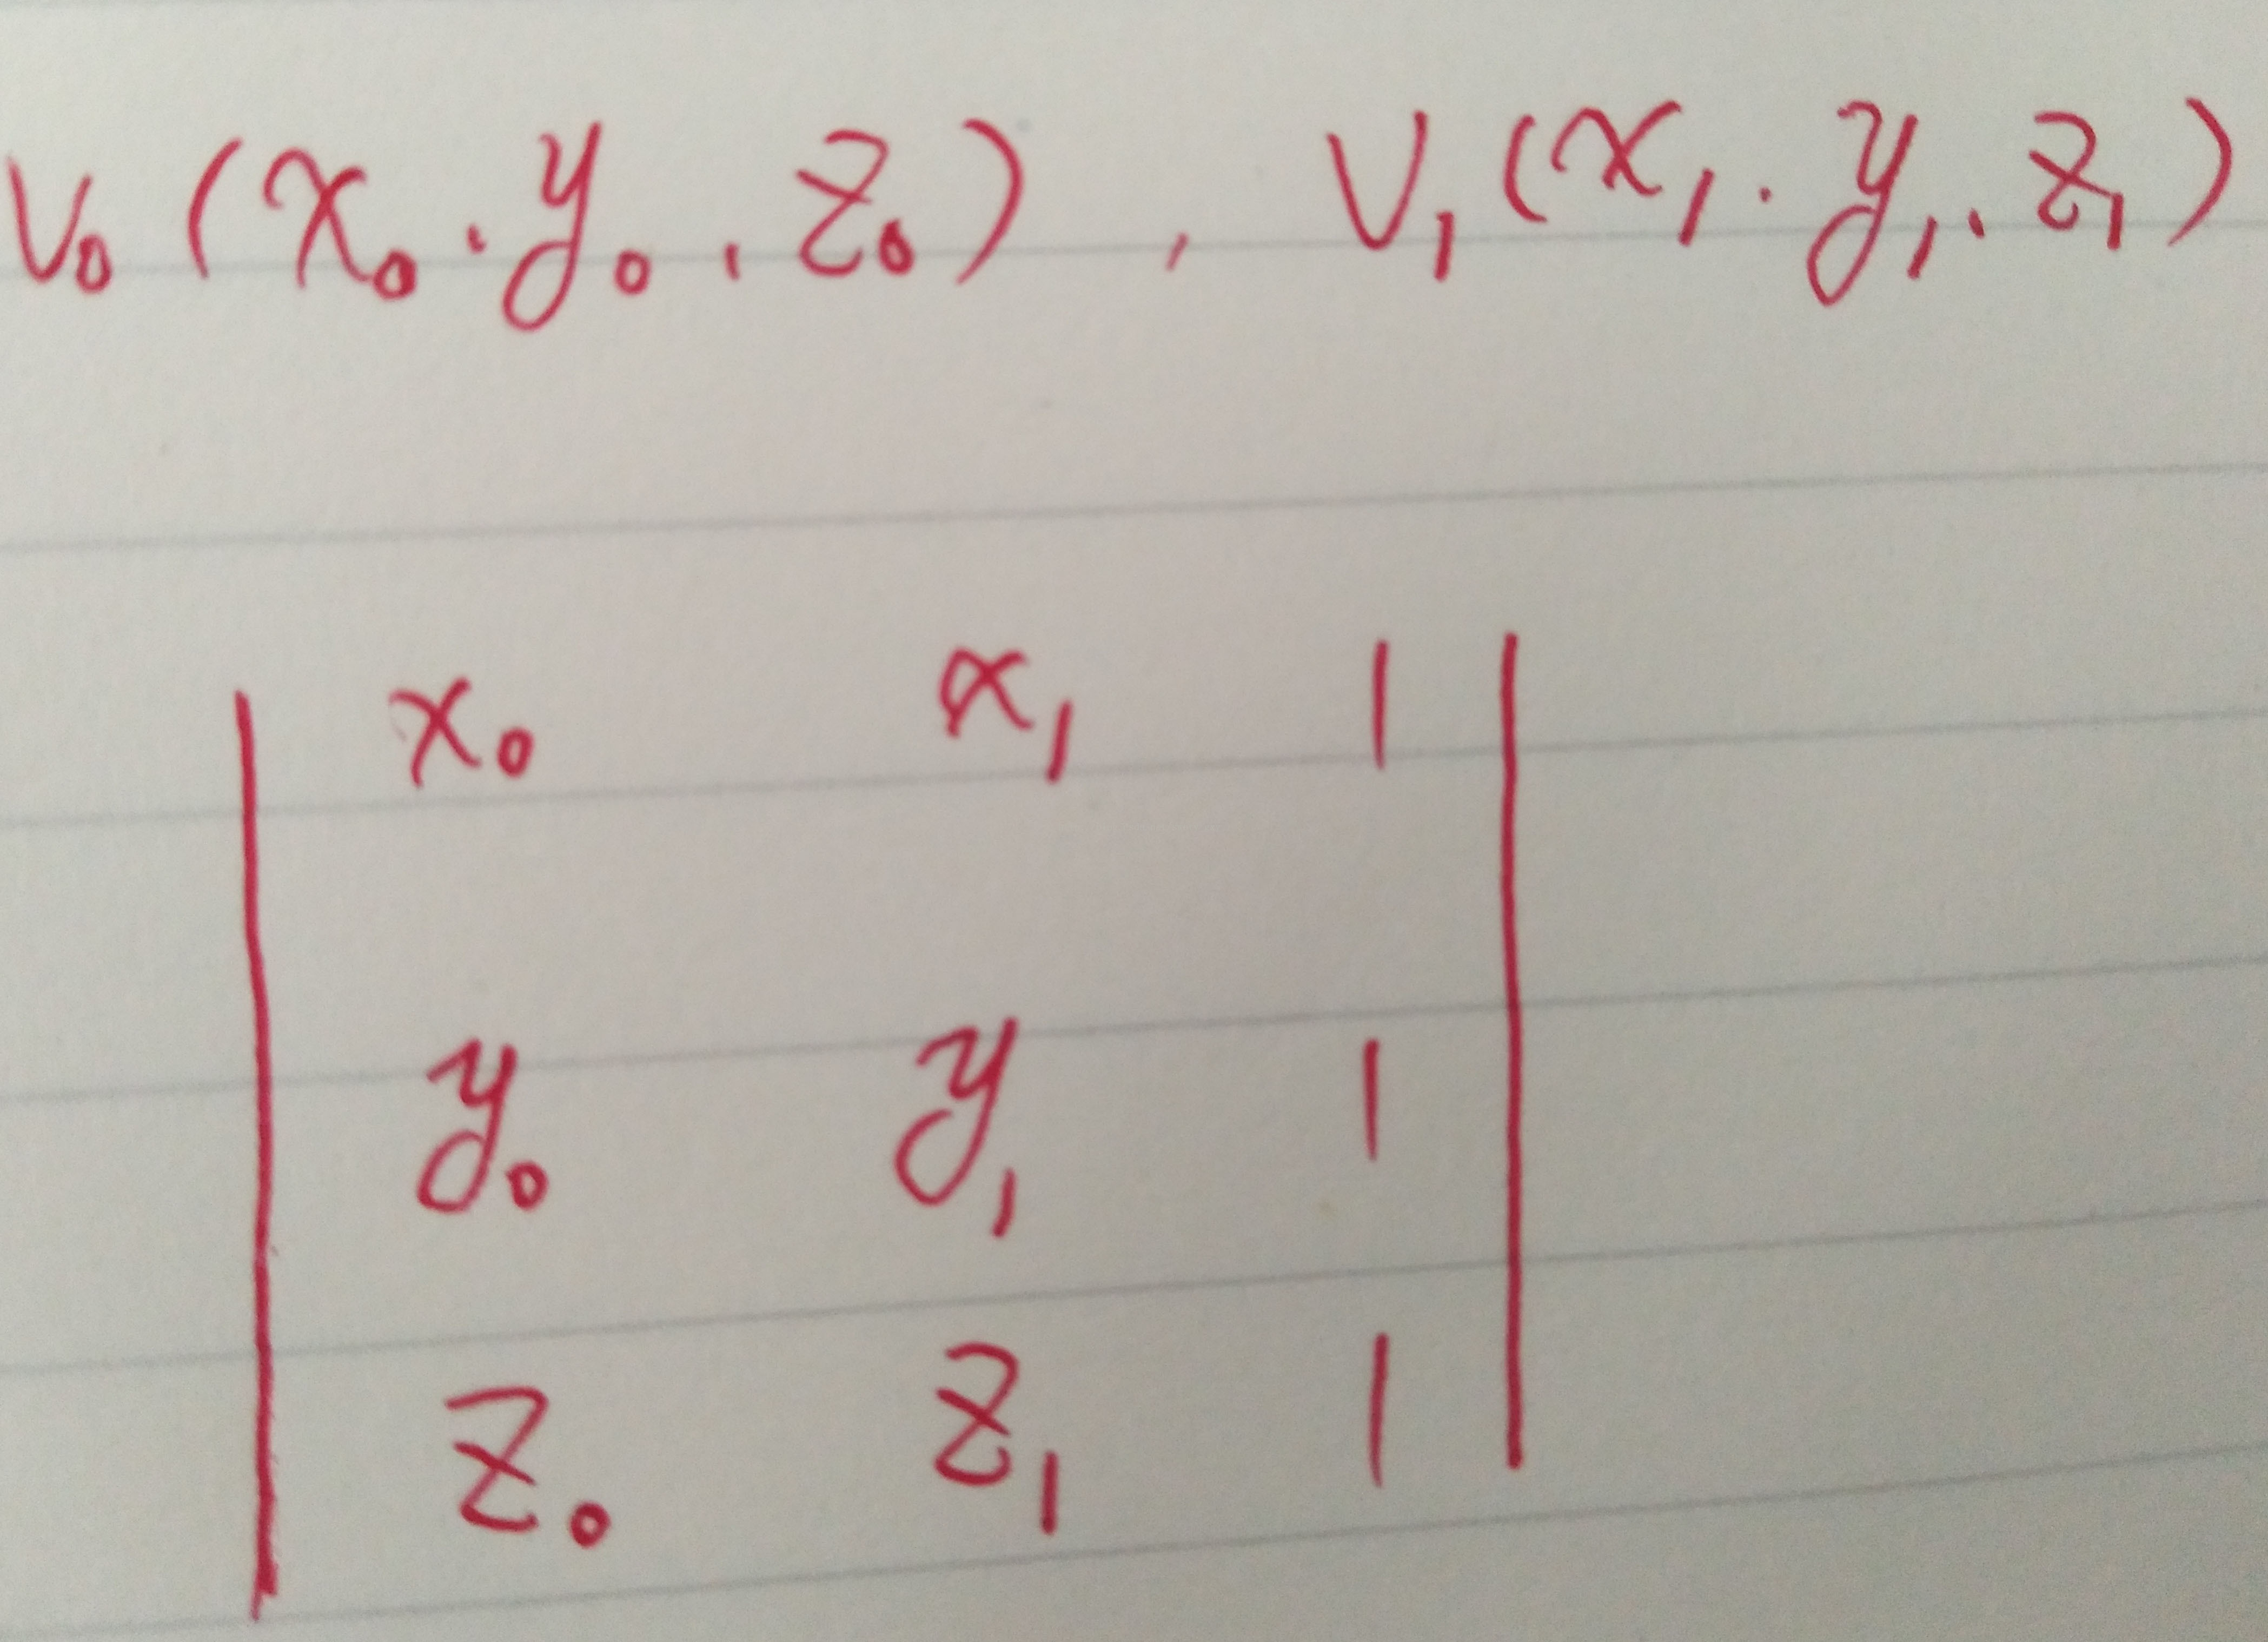 V₀ (x₀ . y₀ , z₀) , V₁ (x₁ . y₁ . z₁)
| x₀ x₁ 1 |
| y₀ y₁ 1 |
| z₀ z₁ 1 |